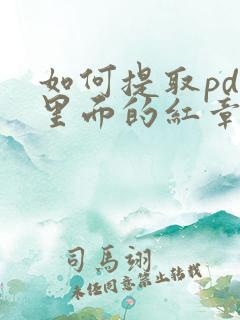 如何提取pd
里面的红章
司马翊
未经同意禁止转载